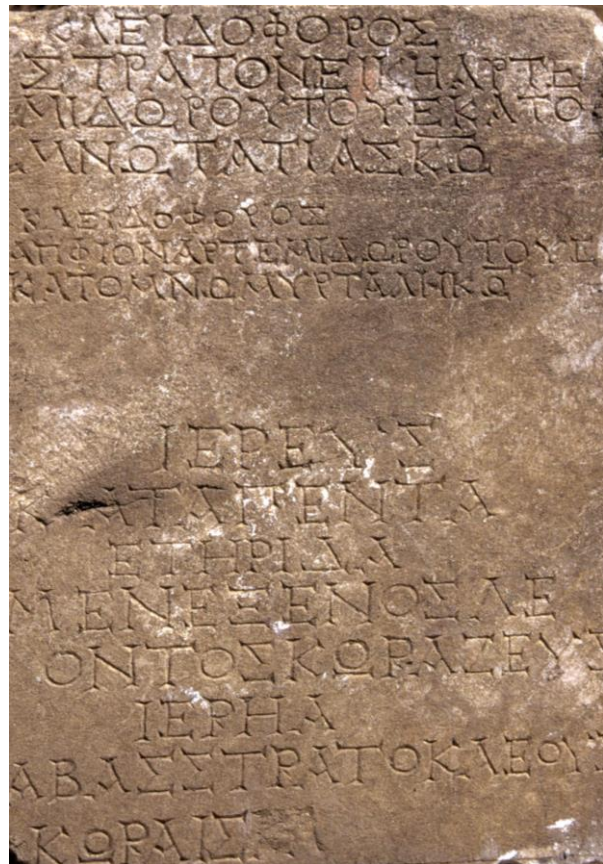 ΚΛΕΙΔΟΦΟΡΟΣ
ΣΤΡΑΤΟΝΕΙΚΗΑΡΤΕ
ΜΙΔΩΡΟΥΤΟΥΕΚΑΤΟ
ΜΝΩΤΑΤΙΑΣΚΩ
ΚΛΕΙΔΟΦΟΡΟΣ
ΑΠΦΙΟΝΑΡΤΕΜΙΔΩΡΟΥΤΟΥΕ
ΚΑΤΟΜΝΩΜΥΡΤΑΛΗΚΩ
ΙΕΡΕΥΣ
ΚΑΤΑΠΕΝΤΑ
ΕΤΗΡΙΔΑ
ΜΕΝΕΞΕΝΟΣΛΕ
ΟΝΤΟΣΚΩΡΑΖΕΥΣ
ΙΕΡΗΑ
ΑΒΑΣΣΤΡΑΤΟΚΛΕΟΥΣ
ΚΩΡΑΙΣ